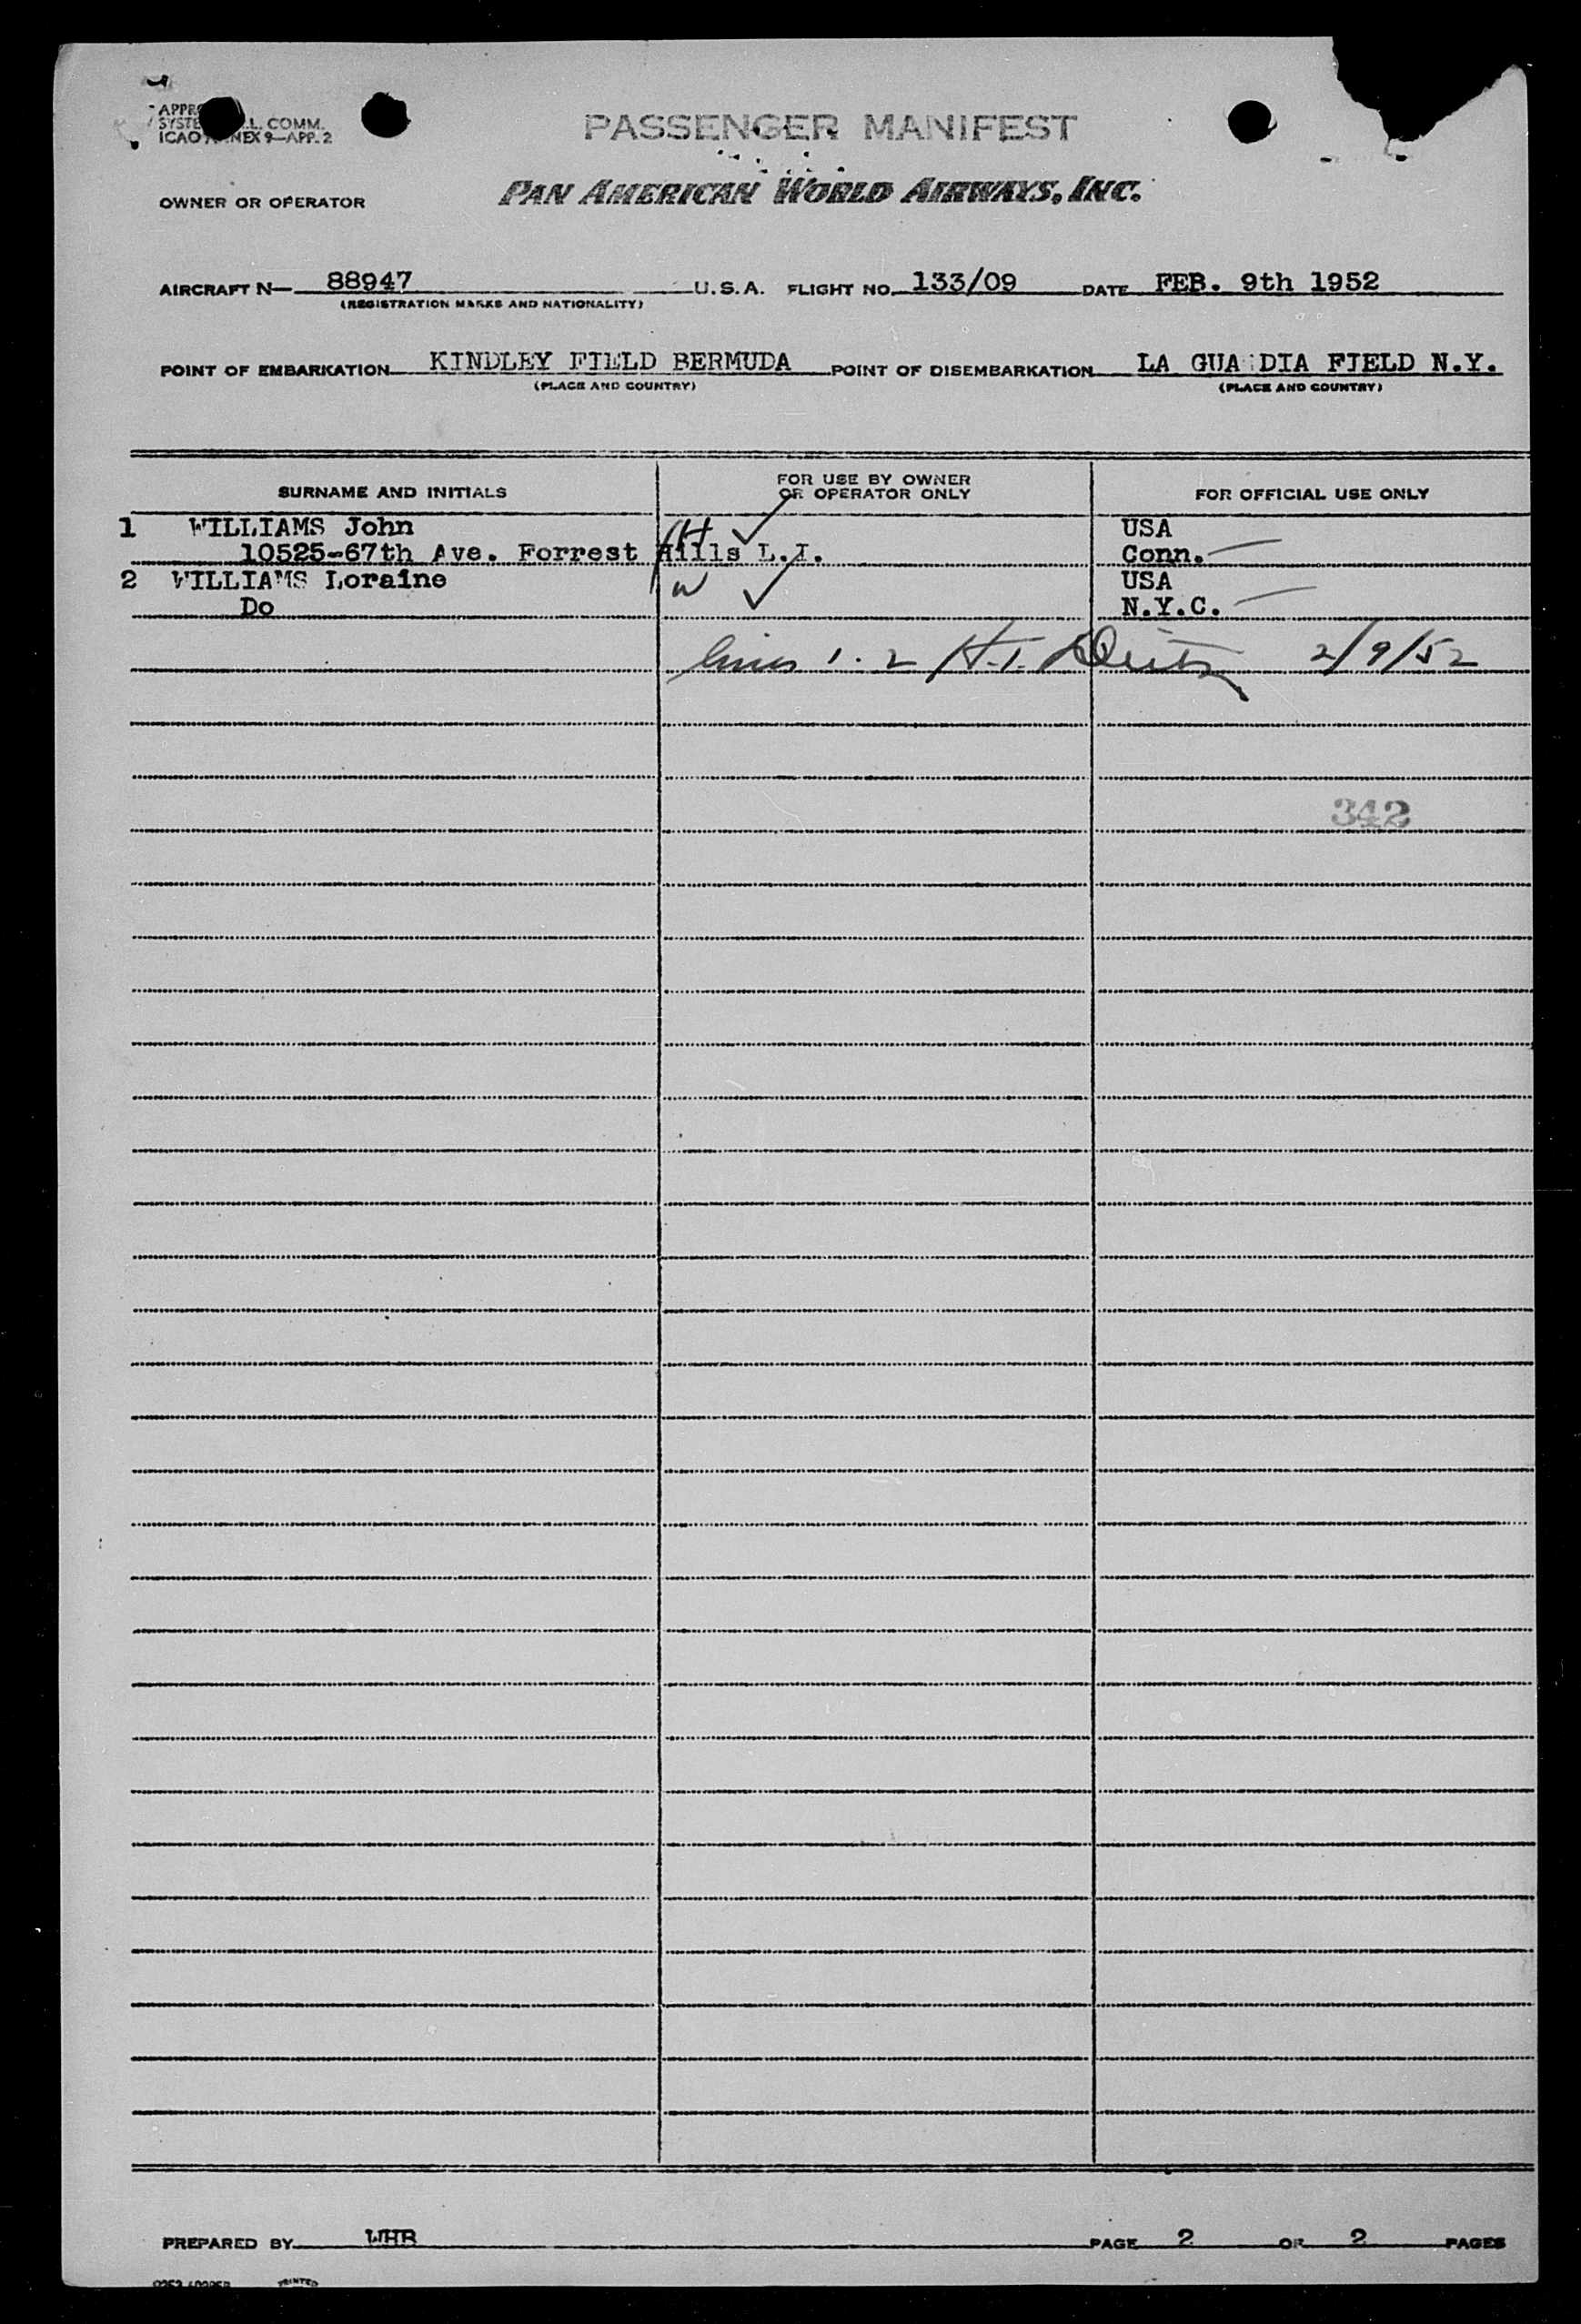 PASSENGER MANIFEST
L. COMM.
ICAO ANNEX 9—APP. 2
OWNER OR OPERATOR PAN AMERICAN WORLD AIRWAYS, INC.
AIRCRAFT N— 88947 U.S.A. FLIGHT NO. 133/09 DATE FEB. 9th 1952
(REGISTRATION MARKS AND NATIONALITY)
POINT OF EMBARKATION KINDLEY FIELD BERMUDA POINT OF DISEMBARKATION LA GUARDIA FIELD N.Y.
(PLACE AND COUNTRY) (PLACE AND COUNTRY)
SURNAME AND INITIALS FOR USE BY OWNER OR OPERATOR ONLY FOR OFFICIAL USE ONLY
1 WILLIAMS John H ✓ USA
10525-67th Ave. Forrest Hills L.I. Conn. —
2 WILLIAMS Loraine W ✓ USA
Do N.Y.C. —
lines 1. 2 H.T. 2/9/52
342
PREPARED BY WHR PAGE 2 OF 2 PAGES
PRINTED